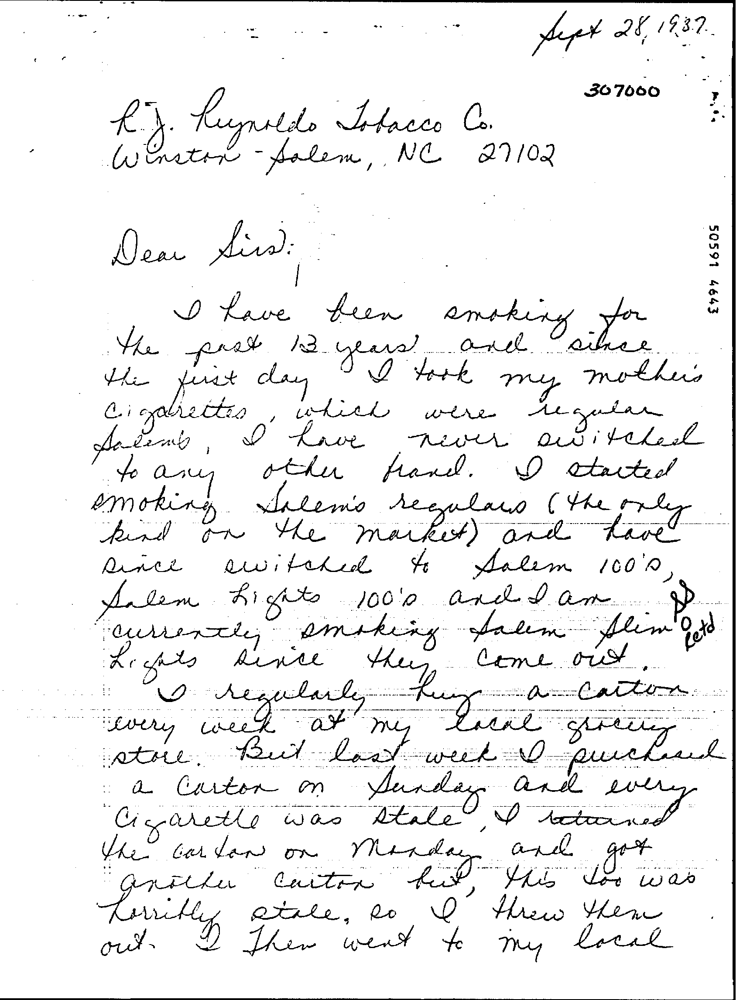 Sept 28, 1987
307000
R.J. Reynolds Tobacco Co.
Winston-Salem, NC 27102
50591 4643
Dear Sirs:
I have been smoking for
the past 13 years and since
the first day I took my mother's
cigarettes, which were regular
Salem's, I have never switched
to any other brand. I started
smoking Salem's regulars (the only
kind on the market) and have
since switched to Salem 100's,
Salem Lights 100's and I am
currently smoking Salem Slim
Lights since they come out.
I regularly buy a carton
every week at my local grocery
store. But last week I purchased
a carton on Sunday and every
cigarette was stale, I returned
the carton on Monday and got
another carton but, this too was
horribly stale, so I threw them
out. I then went to my local